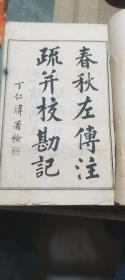 春秋左傳注
疏并校勘記
丁仁煒署檢